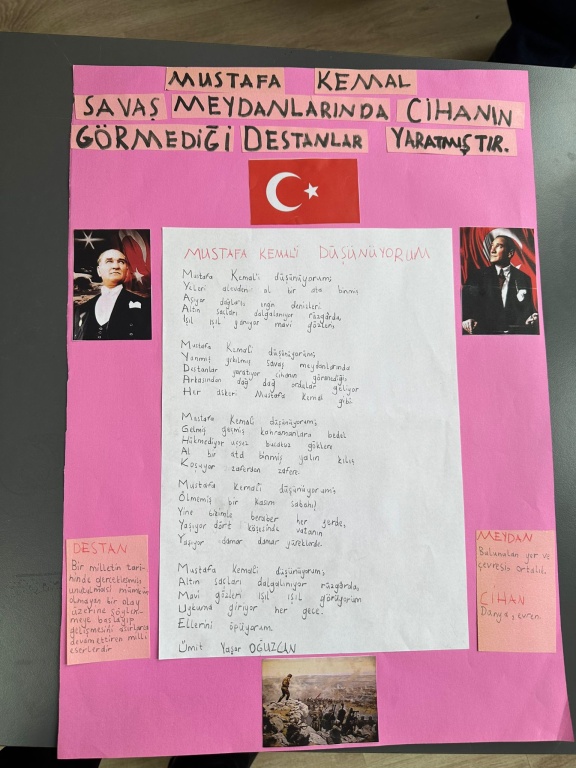 MUSTAFA KEMAL
SAVAŞ MEYDANLARINDA CİHANIN
GÖRMEDİĞİ DESTANLAR YARATMIŞTIR.
MUSTAFA KEMAL'İ DÜŞÜNÜYORUM
Mustafa Kemal'i düşünüyorum;
Yeleri alevden al bir ata binmiş
Aşıyor dağları engin denizleri.
Altın saçları dalgalanıyor rüzgarda,
Işıl ışıl yanıyor mavi gözleri
Mustafa Kemal'i düşünüyorum;
Yanmış yıkılmış savaş meydanlarında
Destanlar yaratıyor cihanın görmediği
Arkasından dağ dağ ordular geliyor
Her askeri Mustafa Kemal gibi
Mustafa Kemal'i düşünüyorum;
Gelmiş geçmiş kahramanlara bedel
Hükmediyor uçsuz bucaksız göklere
Al bir ata binmiş yalın kılıç
Koşuyor zaferden zafere.
Mustafa Kemal'i düşünüyorum;
Ölmemiş bir kasım sabahı!
Yine bizimle beraber her yerde,
Yaşıyor dört köşesinde vatanın
Yaşıyor damar damar yüreklerde.
Mustafa Kemal'i düşünüyorum;
Altın saçları dalgalanıyor rüzgarda,
Mavi gözleri ışıl ışıl görüyorum
Uykuma giriyor her gece.
Ellerini öpüyorum.
Ümit Yaşar OĞUZCAN
DESTAN
Bir milletin tari-
hinde
unutulması mümkün
olmayan bir olay
üzerine söylen-
meye başlayıp
gelişmesini asırlarca
devam ettiren milli
eserlerdir
MEYDAN
Bulunulan yer ve
çevresi, ortalık.
CİHAN
Dünya, evren.